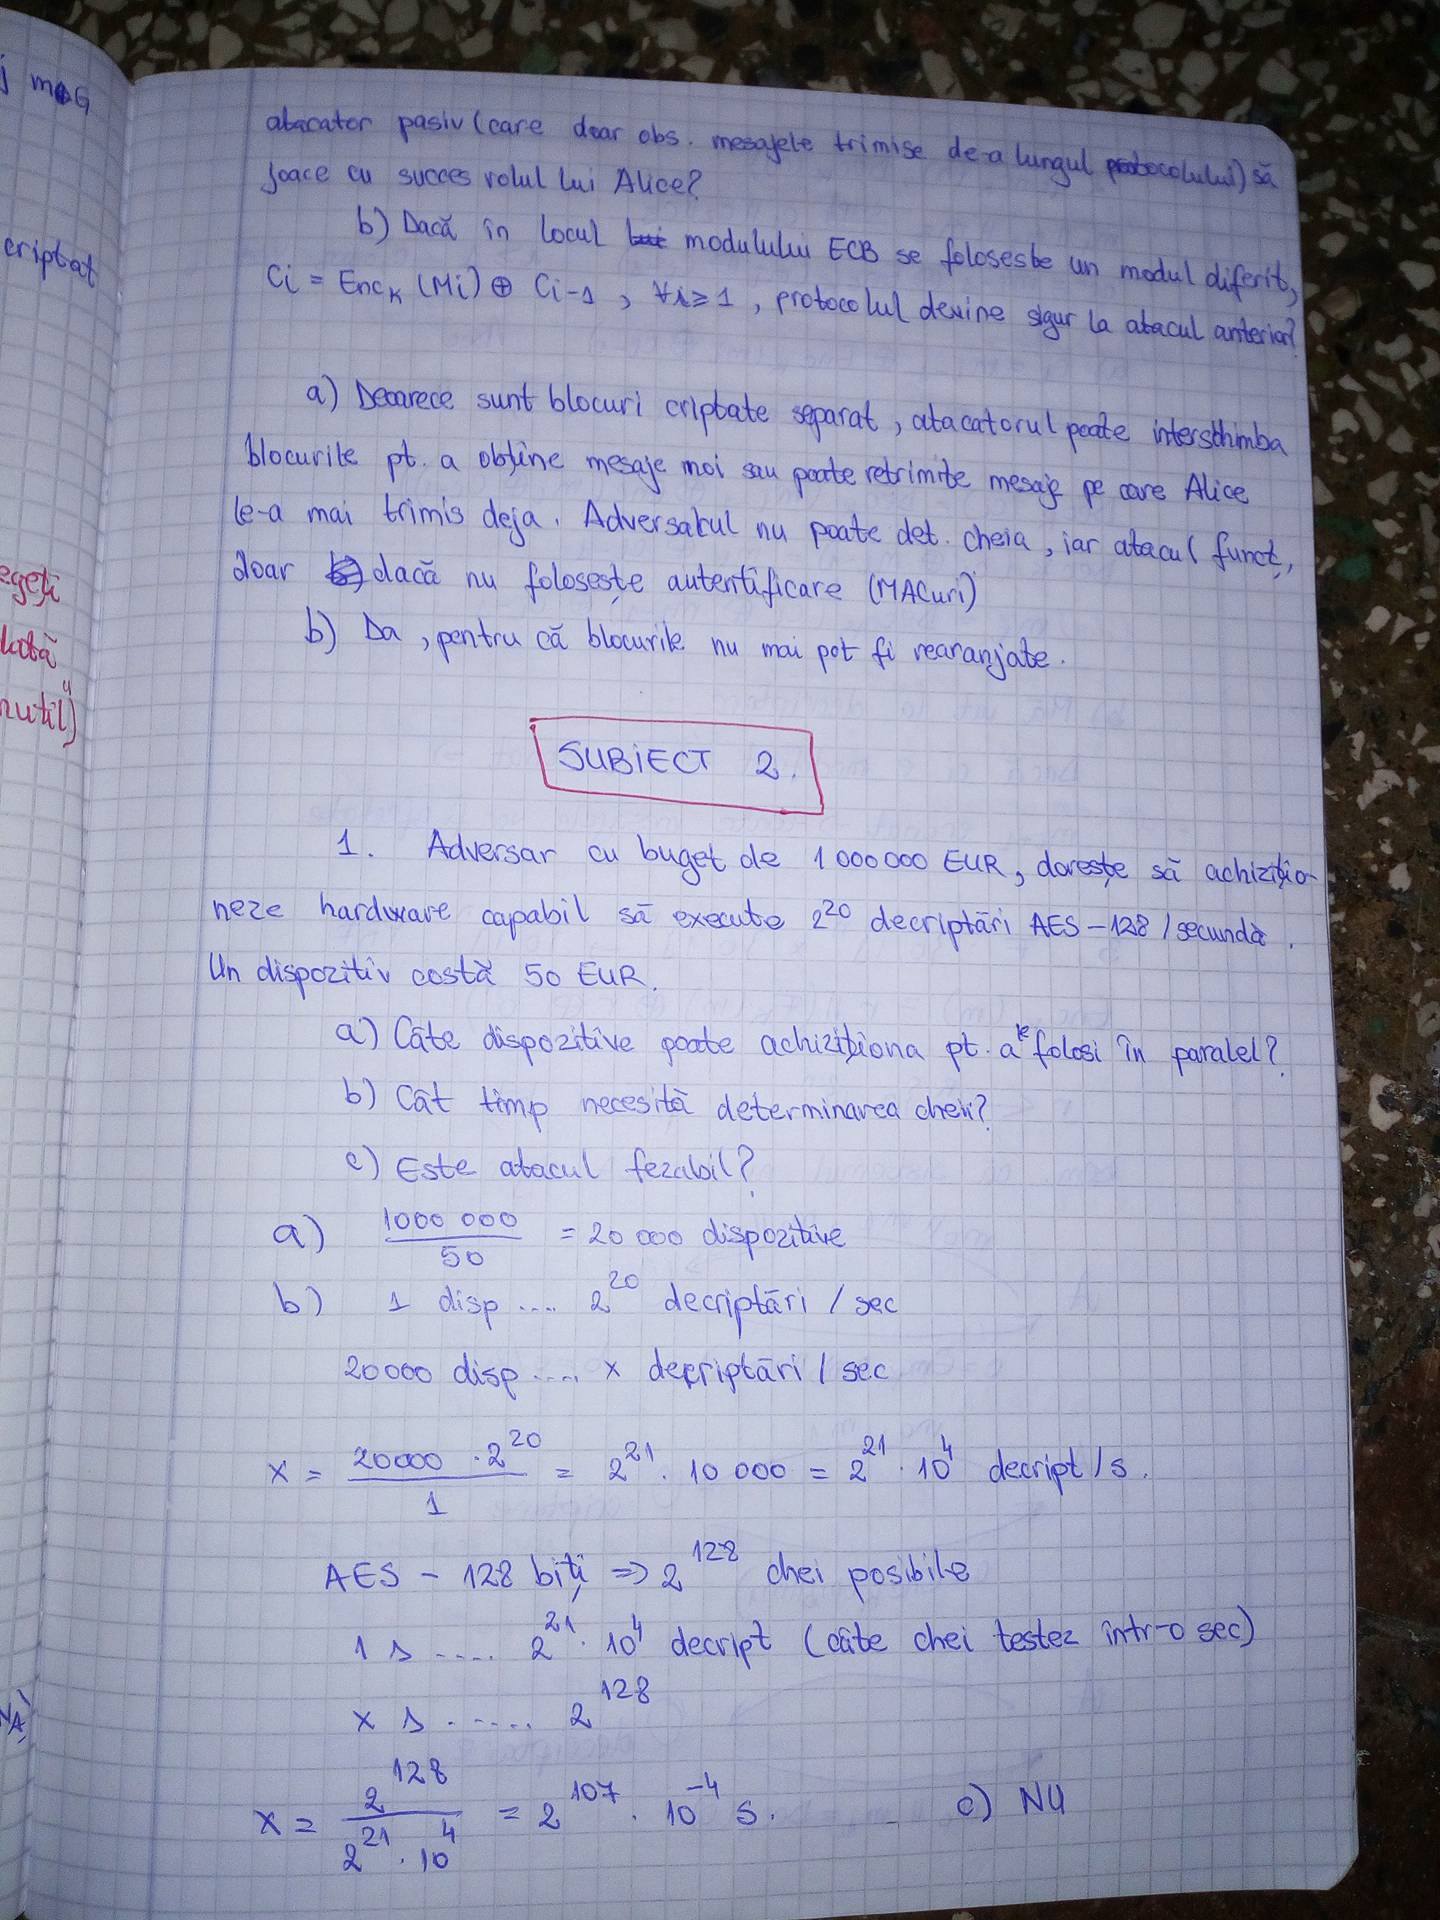 j mG
criptat
egeți
lată
nutil)
atacator pasiv (care doar obs. mesajele trimise de-a lungul protocolului) să
joace cu succes rolul lui Alice?
b) Dacă în locul modulului ECB se foloseste un modul diferit,
Ci = EncK (Mi) ⊕ Ci-1 , ∀i≥1 , protocolul devine sigur la atacul anterior?
a) Deoarece sunt blocuri criptate separat, atacatorul poate interschimba
blocurile pt. a obține mesaje noi sau poate retrimite mesaje pe care Alice
le-a mai trimis deja. Adversarul nu poate det. cheia, iar atacul funcț,
doar dacă nu folosește autentificare (MACuri)
b) Da, pentru că blocurile nu mai pot fi rearanjate.
SUBIECT 2.
1. Adversar cu buget de 1 000 000 EUR, dorește să achizițio-
neze hardware capabil să execute 2^20 decriptări AES-128/secundă.
Un dispozitiv costă 50 EUR.
a) Câte dispozitive poate achiziționa pt. a le folosi în paralel?
b) Cât timp necesită determinarea cheii?
c) Este atacul fezabil?
a) 1000 000 / 50 = 20 000 dispozitive
b) 1 disp .... 2^20 decriptări / sec
20000 disp .... x decriptări / sec
x = 20000 · 2^20 / 1 = 2^21 · 10 000 = 2^21 · 10^4 decript/s.
AES - 128 biți => 2^128 chei posibile
1 s .... 2^21 · 10^4 decript (câte chei testez într-o sec)
x s ..... 2^128
x = 2^128 / 2^21 · 10^4 = 2^107 · 10^-4 s. c) NU